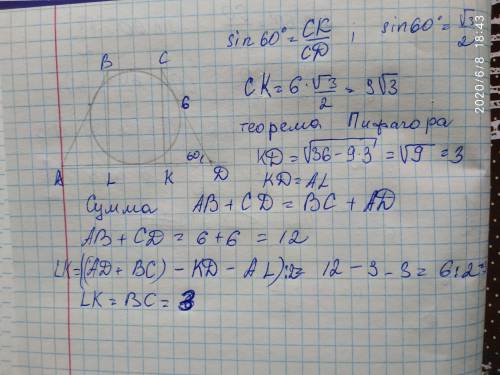 sin60° = CK/CD ; sin60° = √3/2
B C
CK = 6·√3/2 = 3√3
6
теорема Пифагора
60°
KD = √36-9·3 = √9 = 3
A L K D
KD = AL
Сумма AB + CD = BC + AD
AB + CD = 6 + 6 = 12
LK = ((AD + BC) - KD - AL):2 = 12 - 3 - 3 = 6:2 =
LK = BC = 3
2020/6/8 18:43